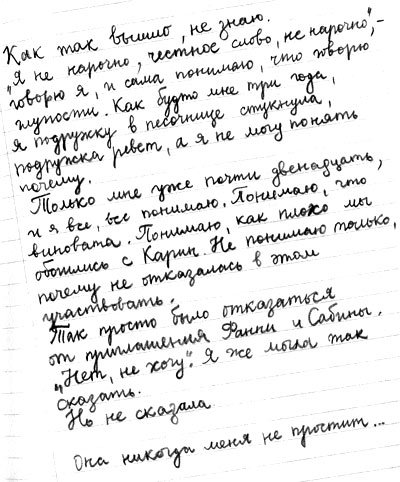 Как так вышло, не знаю.
"Я не нарочно, честное слово, не нарочно", –
говорю я, и сама понимаю, что говорю
глупости. Как будто мне три года,
я подружку в песочнице стукнула,
подружка ревет, а я не могу понять
почему.
Только мне уже почти двенадцать,
и я все, все понимаю. Понимаю, что
виновата. Понимаю, как плохо мы
обошлись с Карин. Не понимаю только,
почему не отказалась в этом
участвовать.
Так просто было отказаться
от приглашения Фанни и Сабины.
"Нет, не хочу". Я же могла так
сказать.
Но не сказала.
Она никогда меня не простит...